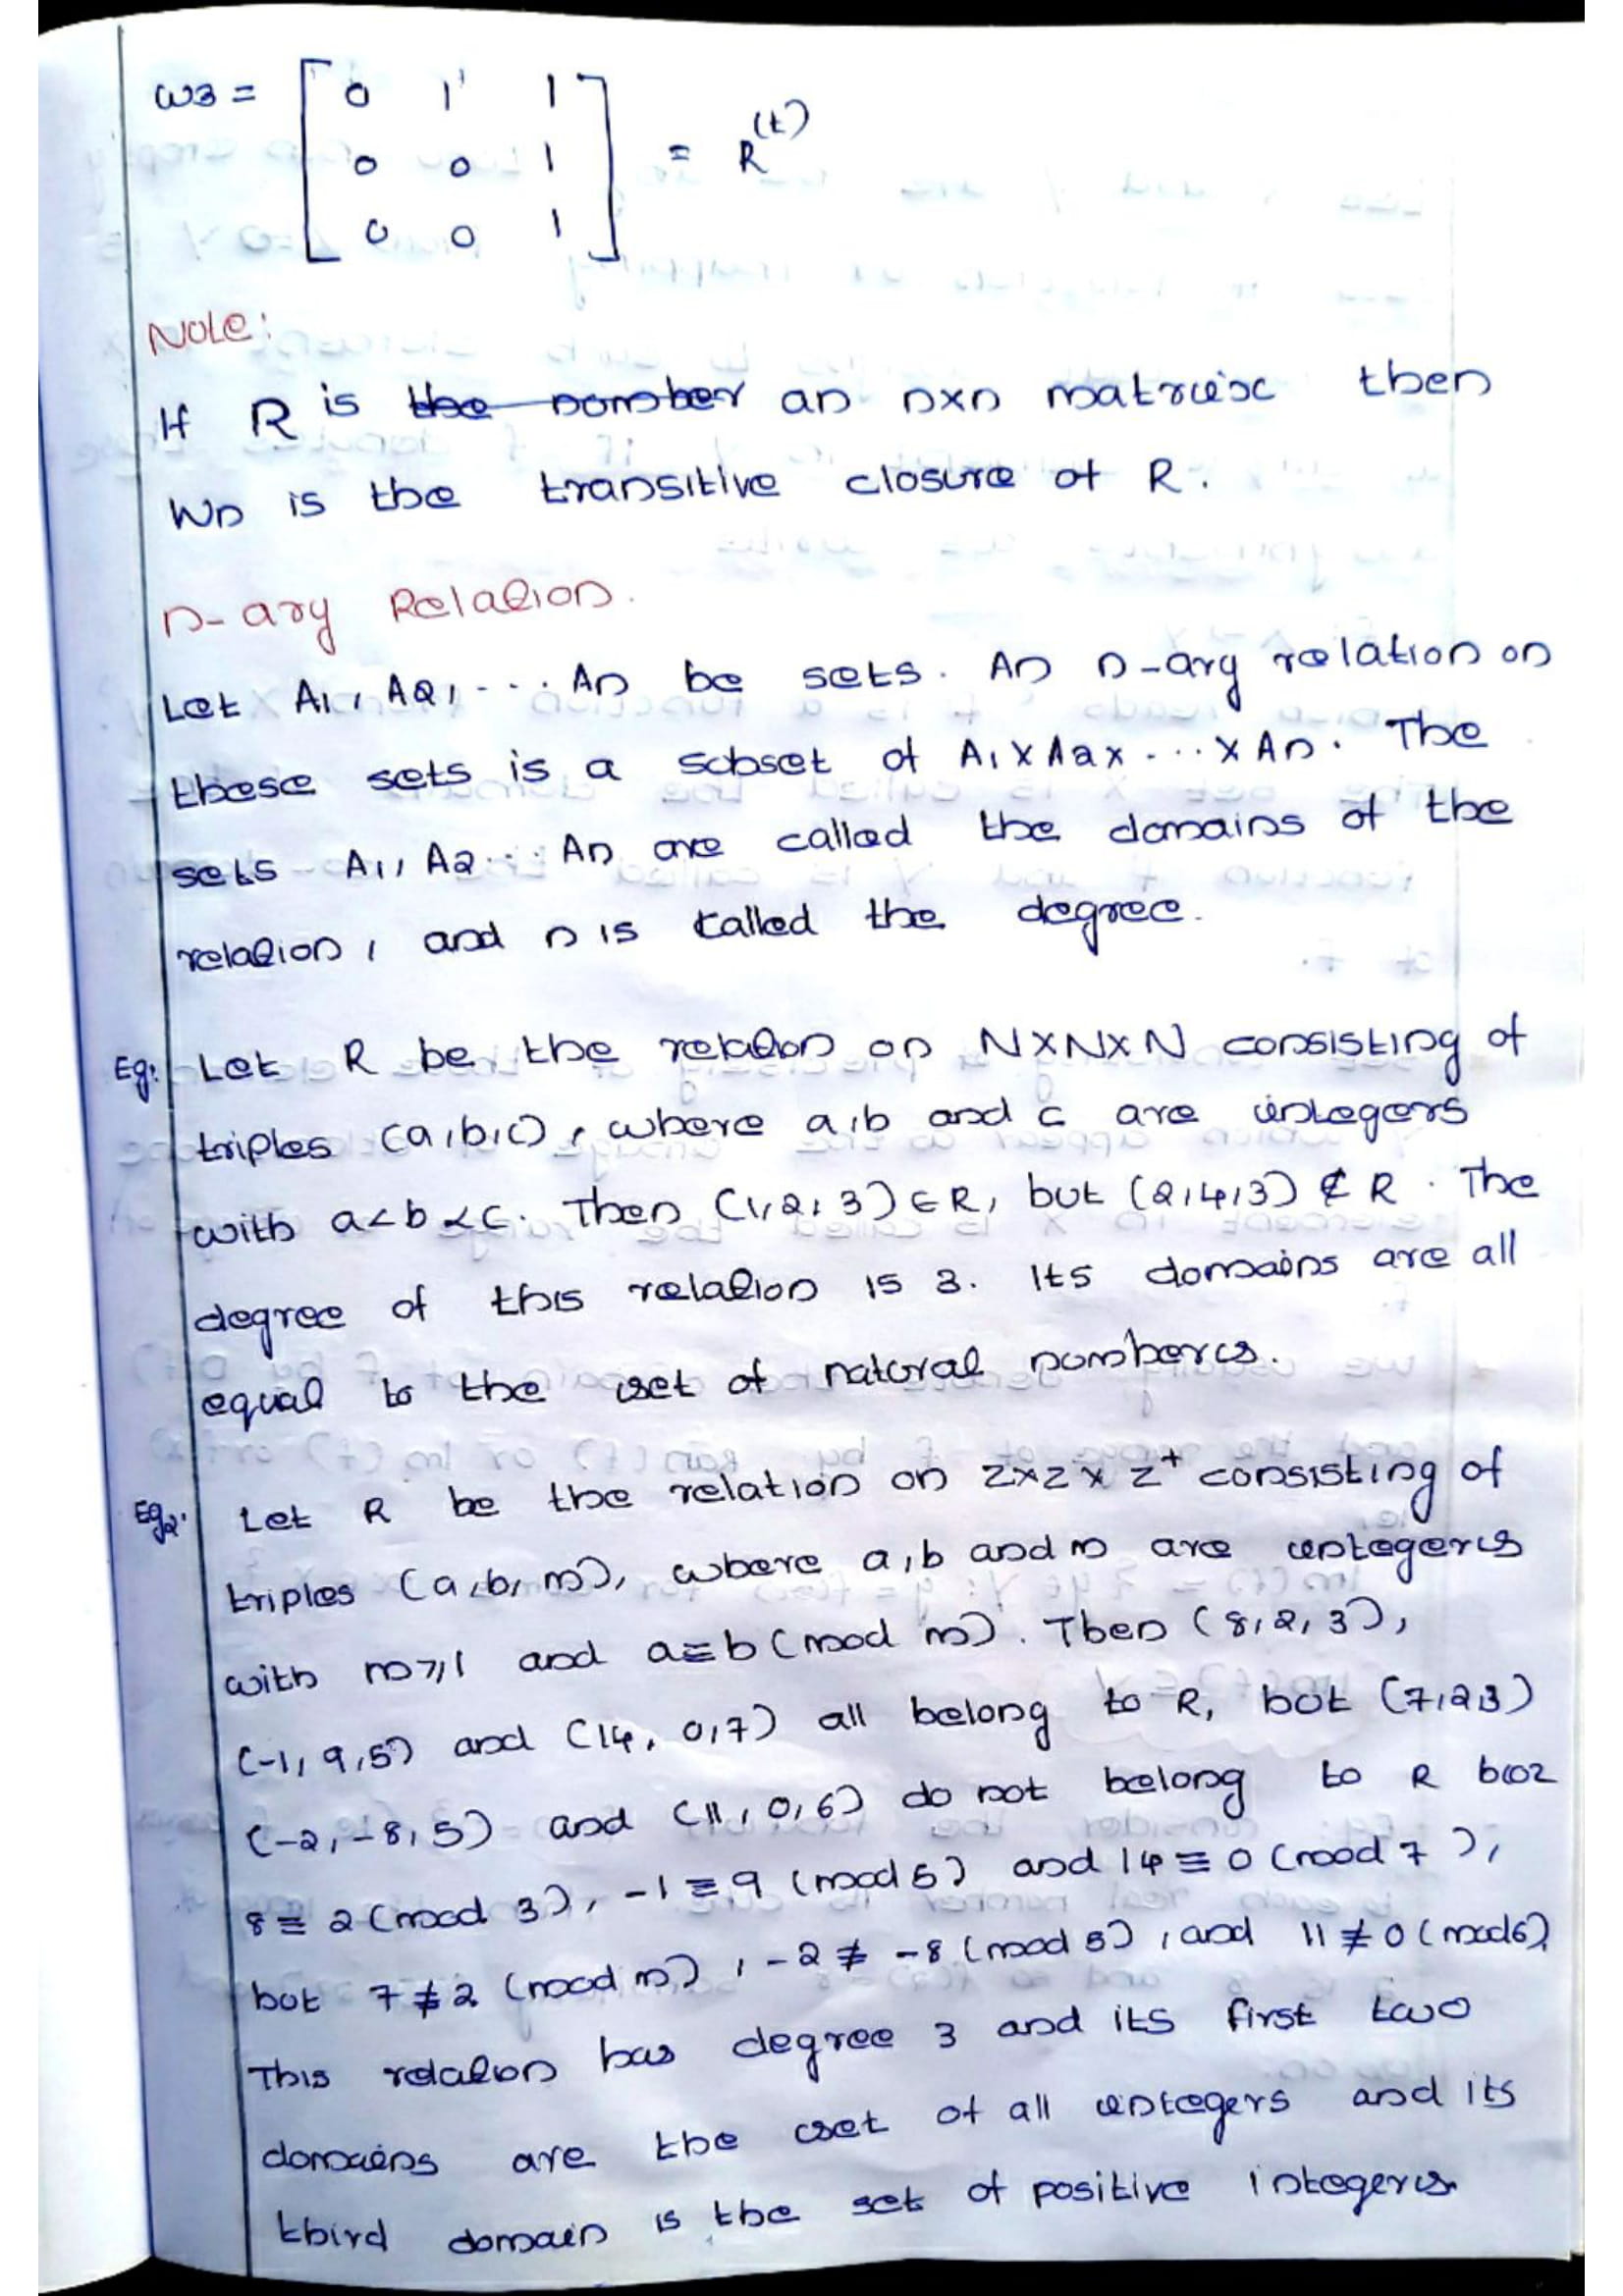 W3 = [ 0 1 1
0 0 1
0 0 1 ] = R(t)
Note:
If R is the number an nxn matrix then
Wn is the transitive closure of R.
n-ary Relation.
Let A1, A2, ... An be sets. An n-ary relation on
these sets is a subset of A1 x A2 x ... x An. The
sets A1, A2 ... An are called the domains of the
relation, and n is called the degree.
Eg: Let R be the relation on NxNxN consisting of
triples (a,b,c), where a,b and c are integers
with a<b<c. Then (1,2,3) ∈ R, but (2,4,3) ∉ R. The
degree of this relation is 3. Its domains are all
equal to the set of natural numbers.
Eg2: Let R be the relation on ZxZxZ+ consisting of
triples (a,b,m), where a,b and m are integers
with m⩾1 and a≡b (mod m). Then (8,2,3),
(-1,9,5) and (14,0,7) all belong to R, but (7,2,3)
(-2,-8,5) and (11,0,6) do not belong to R bcoz
8≡2 (mod 3), -1≡9 (mod 5) and 14≡0 (mod 7),
but 7≢2 (mod m), -2≢-8 (mod 5), and 11≢0 (mod 6)
This relation has degree 3 and its first two
domains are the set of all integers and its
third domain is the set of positive integers